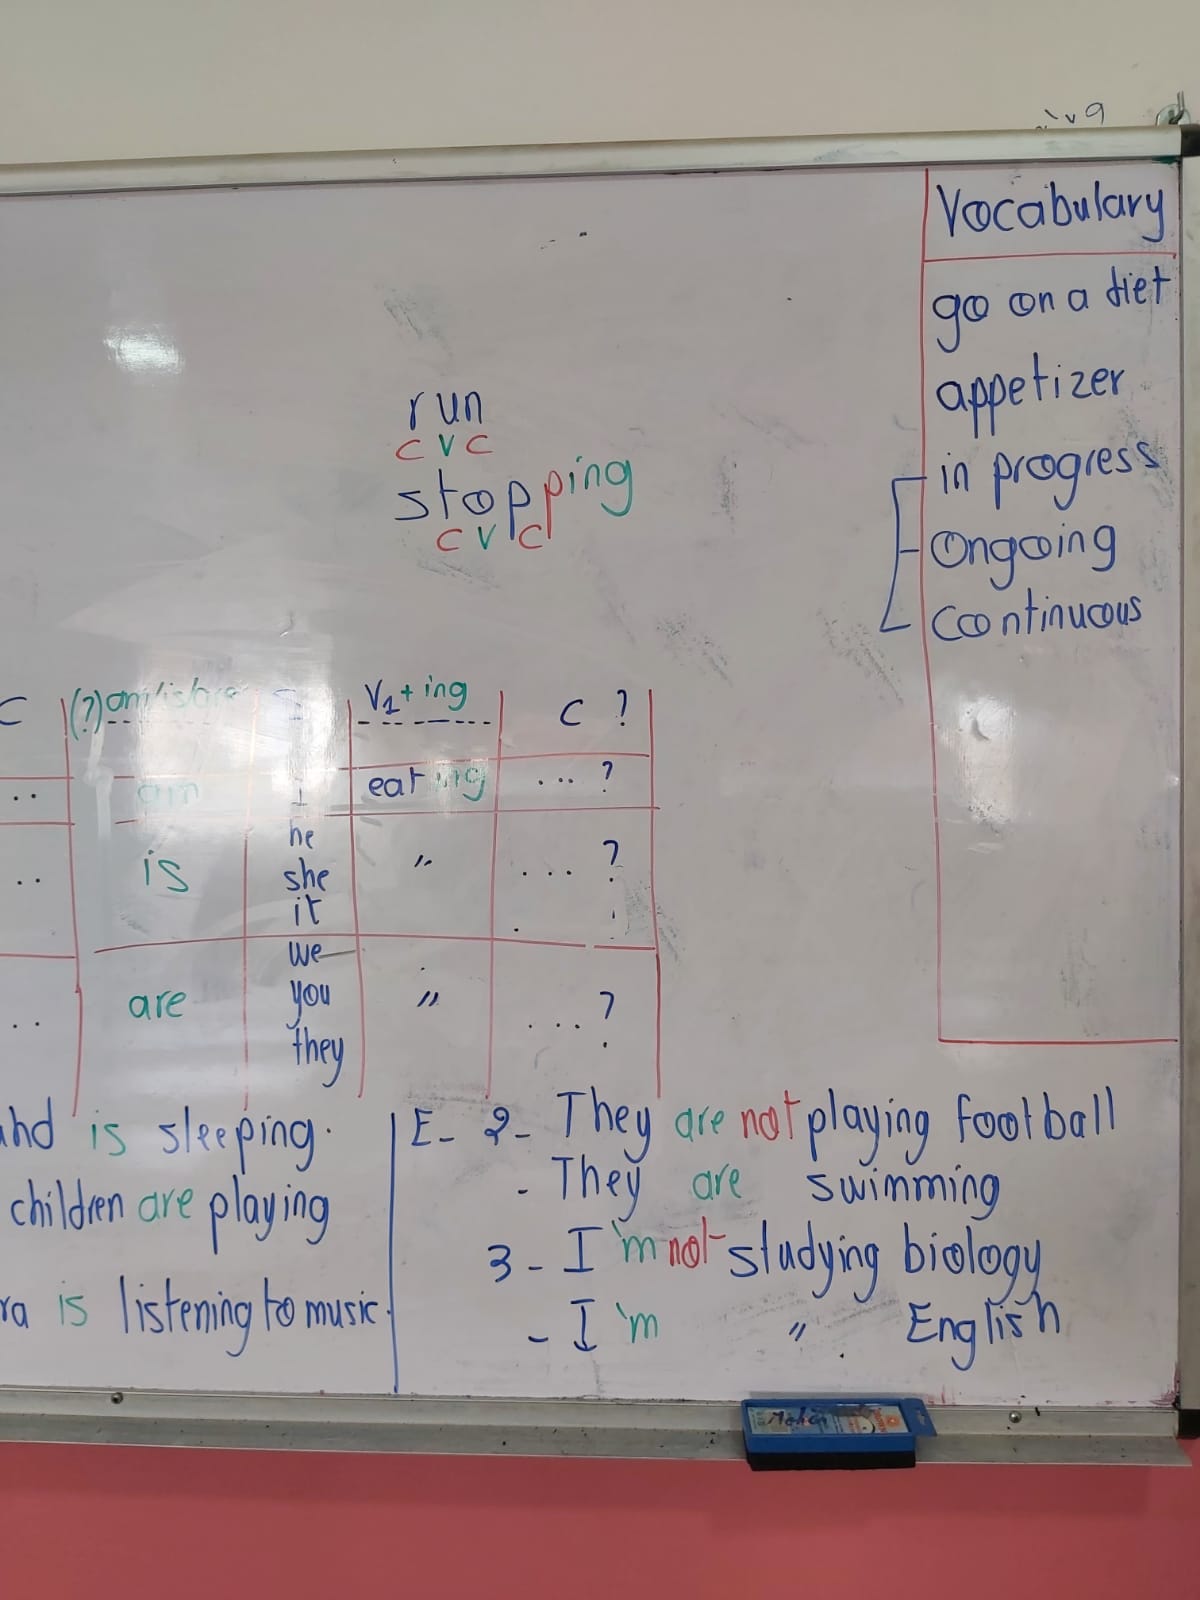 Vocabulary
go on a diet
appetizer
in progress
Ongoing
Continuous
run
C V C
stopping
C V C
C (?) am/is/are S V1 + ing C ?
.. am I eating ... ?
he
.. is she " ... ?
it
we
.. are you " ... ?
they
is sleeping.
children are playing
is listening to music.
E- 2- They are not playing football
- They are swimming
3- I'm not studying biology
- I'm " English